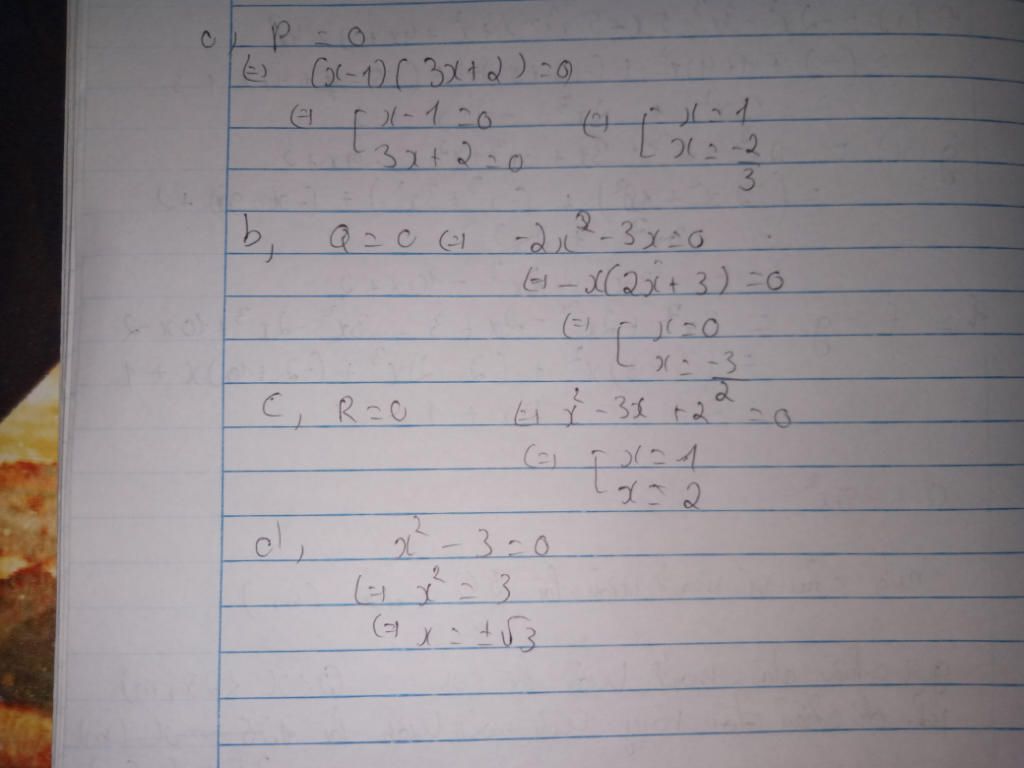 a, P = 0
(=) (x-1)(3x+2)=0
(=) [ x-1=0 (=) [ x=1
3x+2=0 x=-2/3
b, Q=0 (=) -2x²-3x=0
(=) -x(2x+3)=0
(=) [ x=0
x=-3/2
C, R=0 (=) x²-3x+2=0
(=) [ x=1
x=2
d, x²-3=0
(=) x²=3
(=) x=±√3